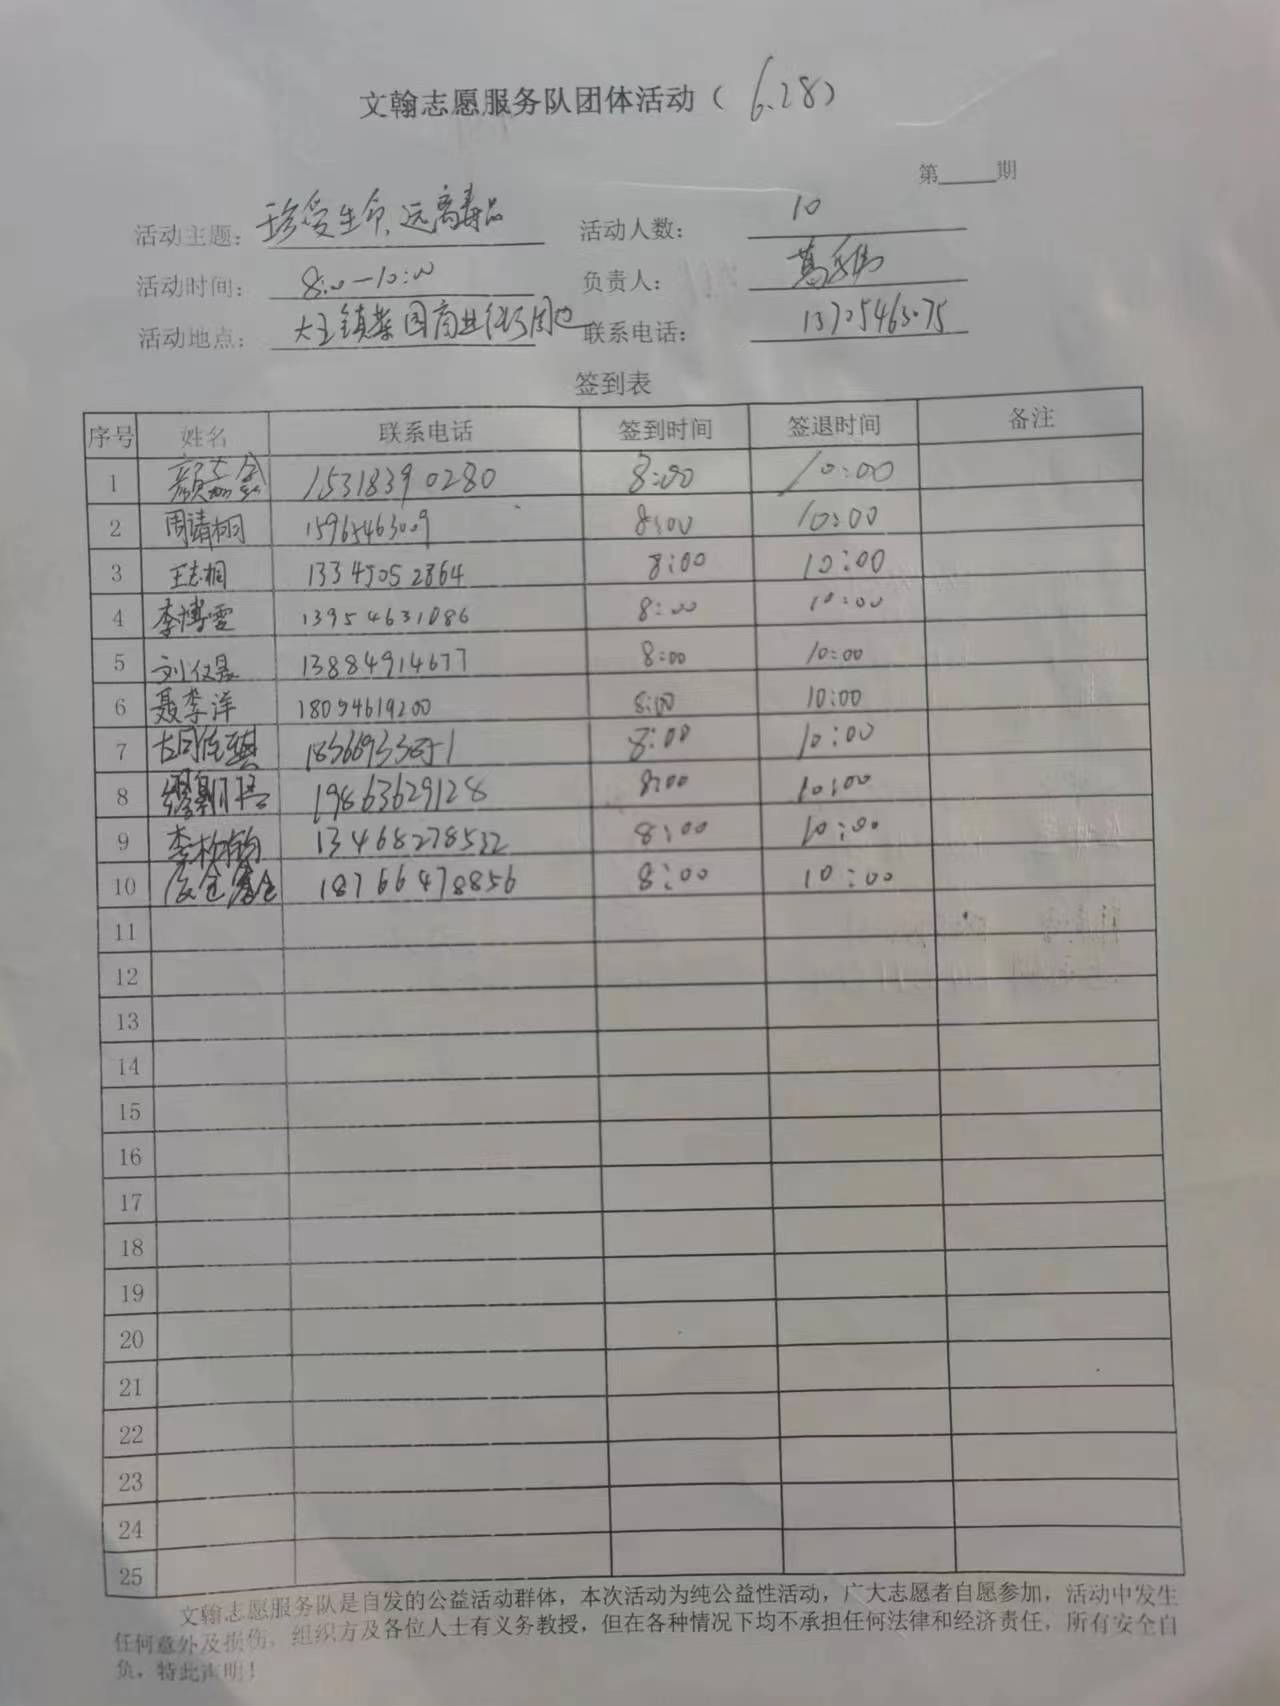 文翰志愿服务队团体活动（6.28）
第 期
活动主题： 珍爱生命,远离毒品 活动人数： 10
活动时间： 8:00-10:00 负责人：
活动地点： 大王镇 园商业街周边 联系电话： 13705463075
签到表
序号 姓名 联系电话 签到时间 签退时间 备注
1 15318390280 8:00 10:00
2 周靖栩 15965463009 8:00 10:00
3 王志桐 13345052864 8:00 10:00
4 李博雯 13954631086 8:00 10:00
5 刘仪晨 13884914677 8:00 10:00
6 聂李洋 18054619200 8:00 10:00
7 8:00 10:00
8 19863629128 8:00 10:00
9 13468278532 8:00 10:00
10 18766478856 8:00 10:00
11
12
13
14
15
16
17
18
19
20
21
22
23
24
25
文翰志愿服务队是自发的公益活动群体，本次活动为纯公益性活动，广大志愿者自愿参加，活动中发生
任何意外及损伤，组织方及各位人士有义务教授，但在各种情况下均不承担任何法律和经济责任，所有安全自
负，特此声明！